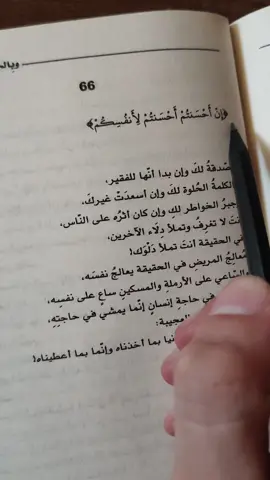 وبالو
66
﴿إِنْ أَحْسَنتُمْ أَحْسَنتُمْ لِأَنفُسِكُمْ﴾
صّدقةُ لكَ وإن بدا أنّها للفقير،
الكلمةُ الحُلوة لكَ وإن أسعدَتْ غيركَ،
جبرُ الخواطر لكِ وإن كان أثرُه على النّاس،
أنتَ لا تغرِفُ وتملأ دِلاء الآخرين،
في الحقيقة أنتَ تملأ دَلْوَك!
مُعالِجُ المريض في الحقيقة يعالجُ نفسَه،
والسّاعي على الأرملةِ والمسكينِ ساعٍ على نفسِه،
في حاجةِ إنسانٍ إنّما يمشي في حاجتِهِ،
العجيبة:
نيا بما أخذناه وإنّما بما أعطيناه!